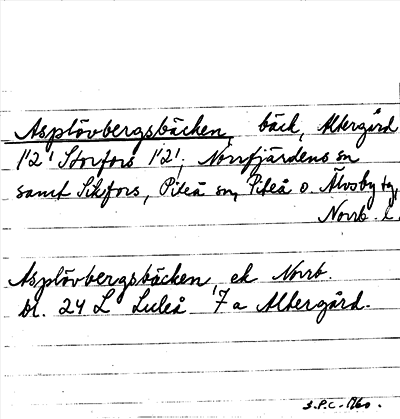 Asplövbergsbäcken, bäck, Altergård
1'2' Storfors 1'2', Norrfjärdens sn
samt Sikfors, Piteå sn, Piteå o. Älvsby tg,
Norrb. l.
Asplövbergsbäcken, ek Norrb.
bl. 24 L Luleå 7 a Altergård.
S.P.C. 1960.